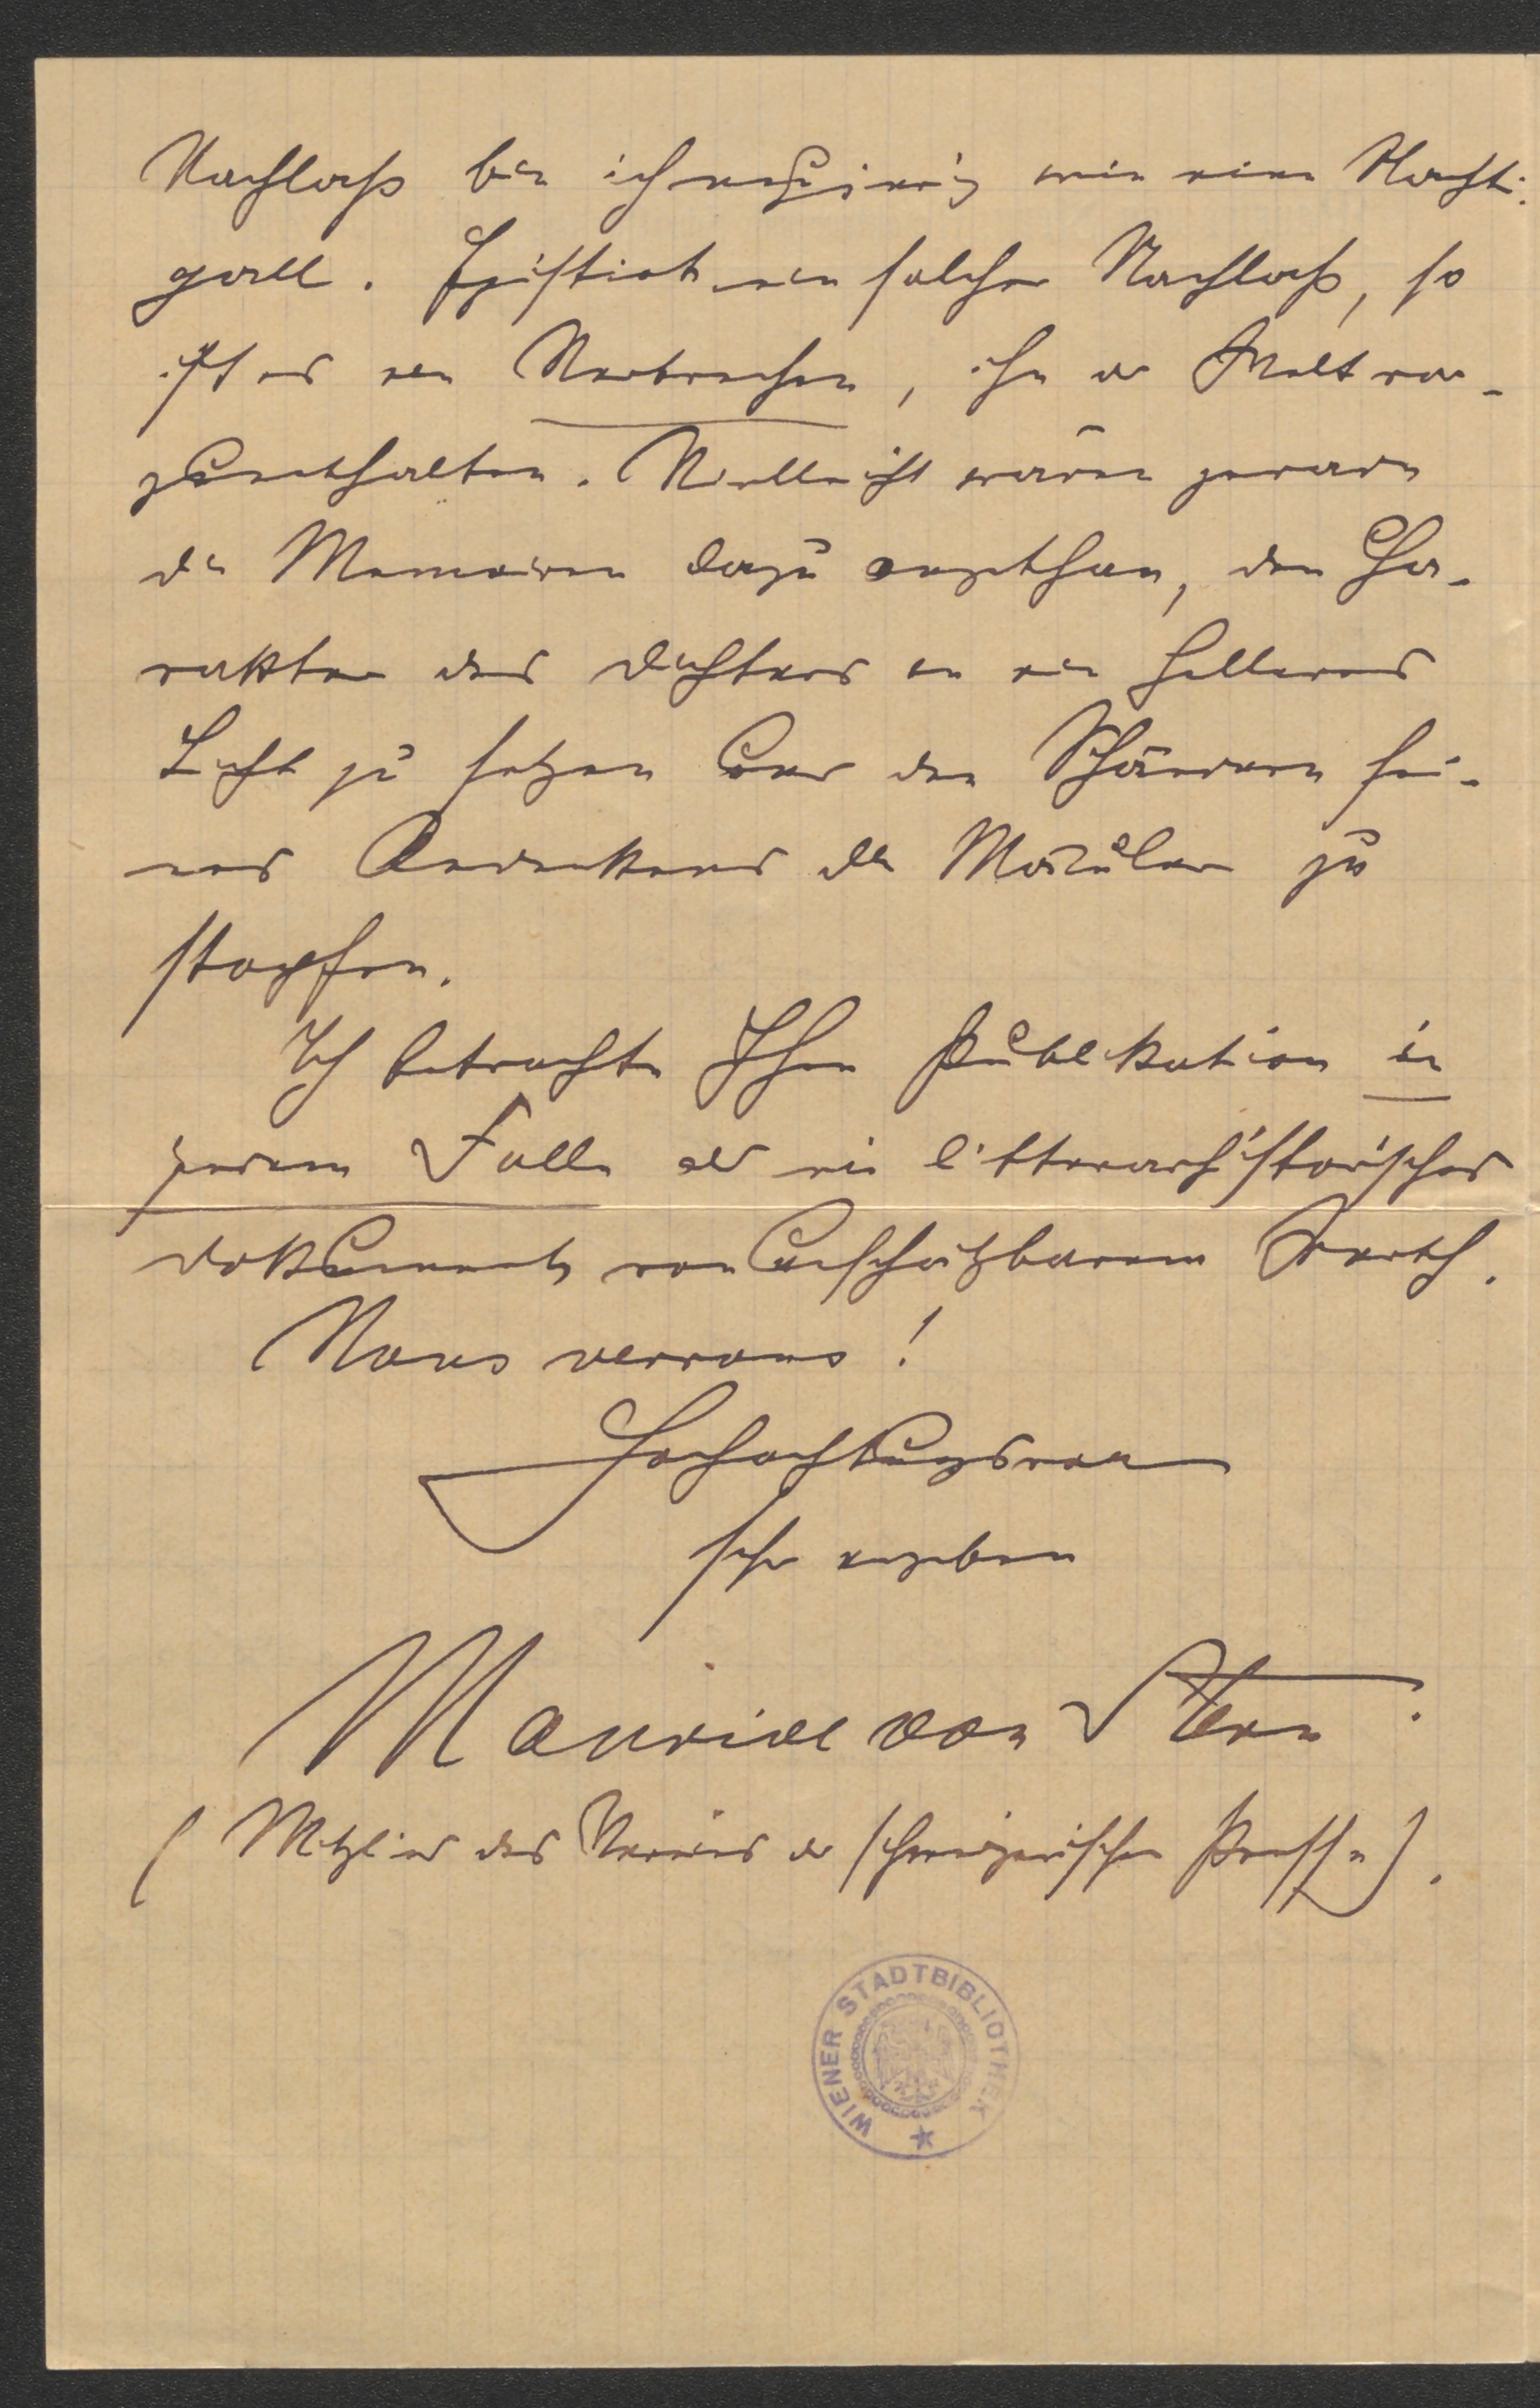 Nachlaß bin ich neugierig wie eine Nachti-
gall. Existirt ein solcher Nachlaß, so
ist es ein Verbrechen, ihn der Welt vor-
zuenthalten. Vielleicht wären gerade
die Memoiren dazu angethan, den Cha-
rakter des Dichters in ein helleres
Licht zu setzen und den Schändern sei-
nes Andenkens die Mäuler zu
stopfen.
Ich betrachte Ihre Publikation in
jedem Falle als ein litterarhistorisches
Dokument von unschätzbarem Werth.
Nous verrons!
Hochachtungsvoll
sehr ergeben
Maurice von Stern.
(Mitglied des Vereins der schweizerischen Presse).
WIENER STADTBIBLIOTHEK